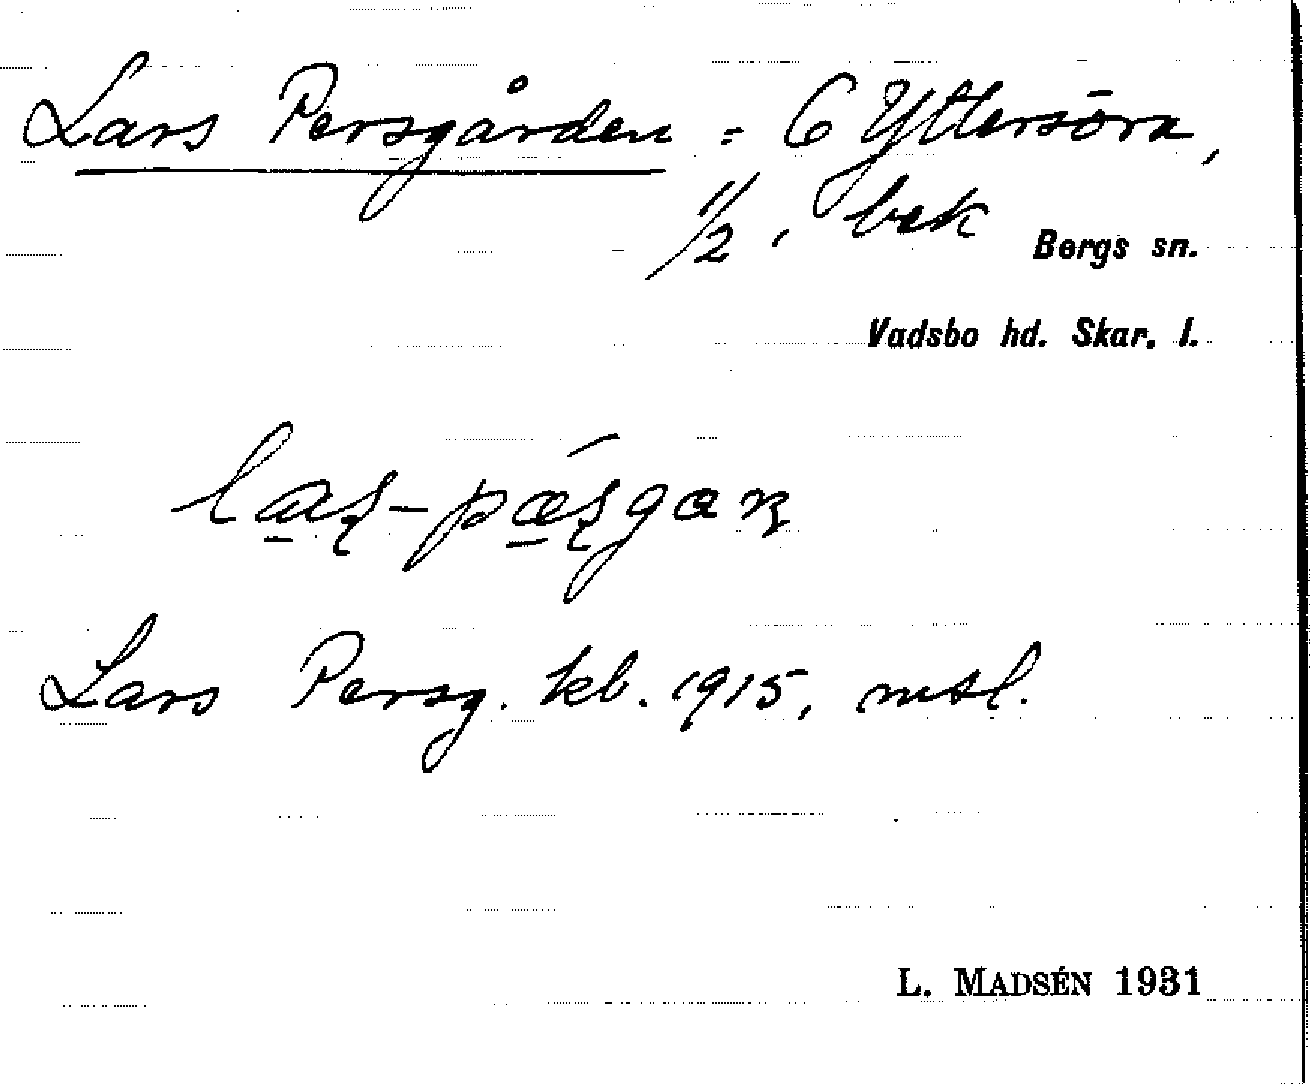 Lars Persgården = C Yttersöra,
1/2, bek
Bergs sn.
Vadsbo hd. Skar. l.
Lars Persg. kb. 1915, mtl.
L. MADSÉN 1931